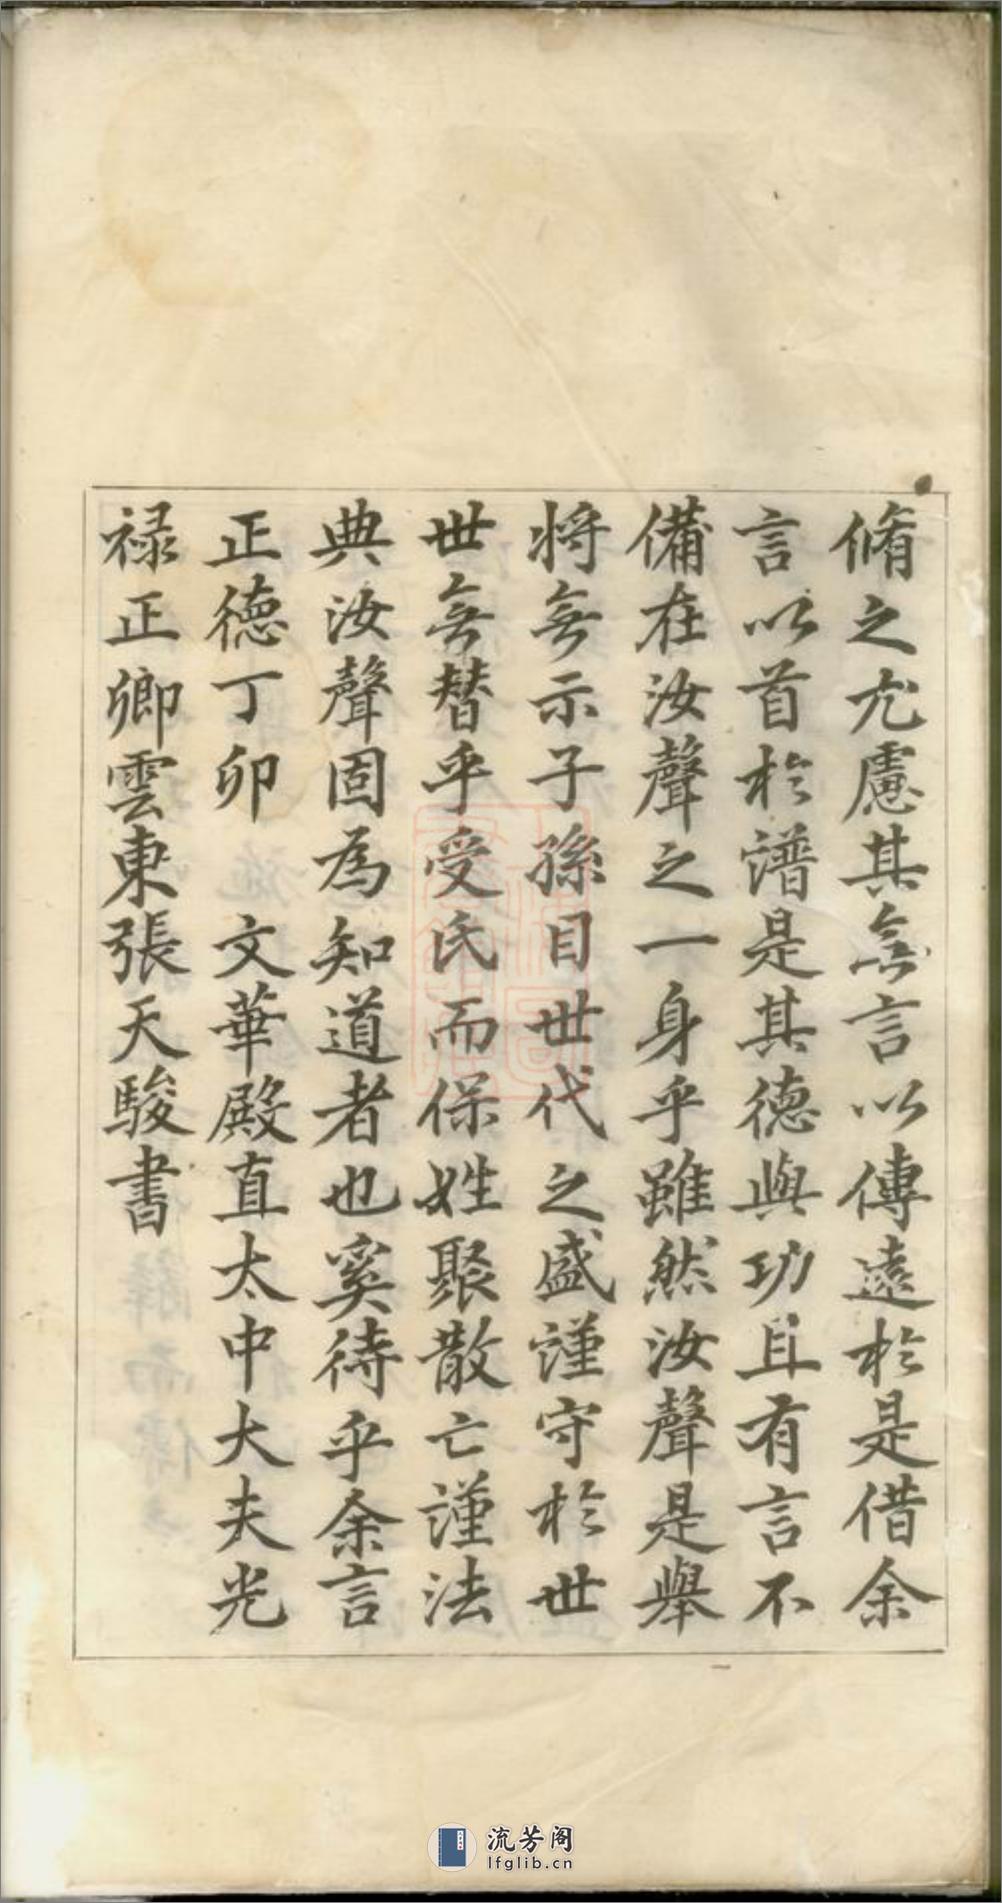 脩之尤慮其無言以傳遠於是借余
言以首於譜是其德與功且有言不
備在汝聲之一身乎雖然汝聲是舉
將無示子孫目世代之盛謹守於世
世無替乎受氏而保姓聚散亡謹法
典汝聲固為知道者也奚待乎余言
正德丁卯 文華殿直太中大夫光
禄正卿雲東張天駿書
流芳阁
lfglib.cn